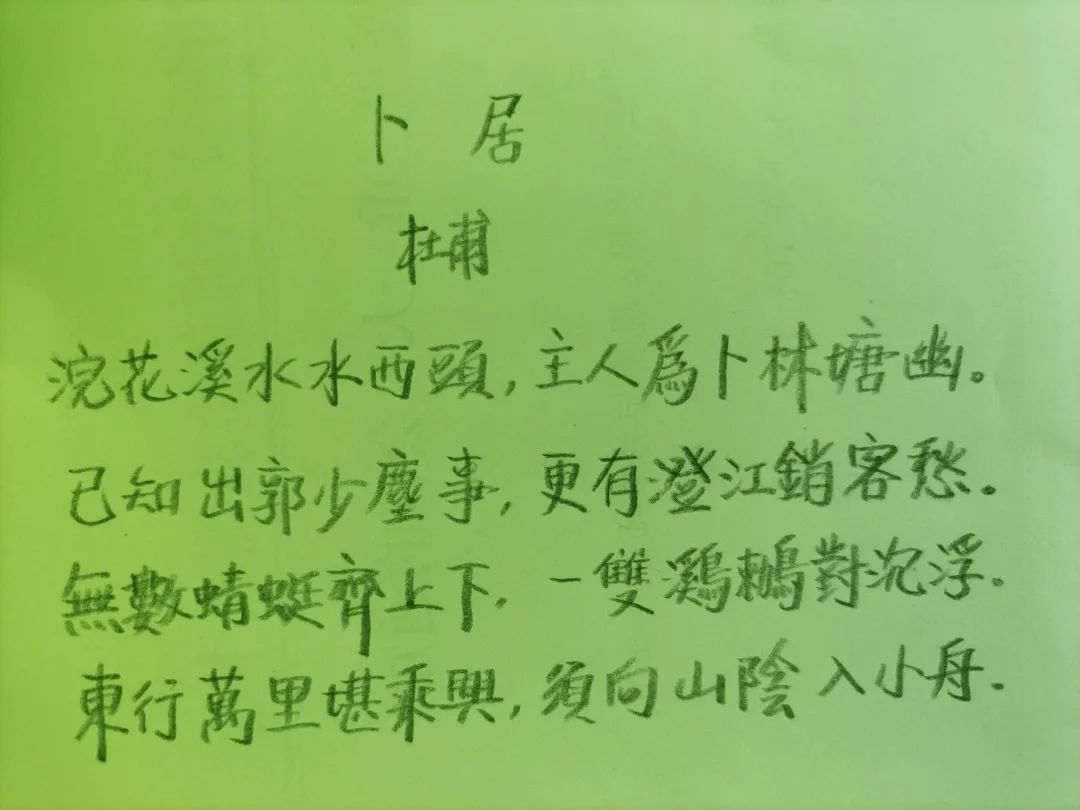 卜居
杜甫
浣花溪水水西頭,主人爲卜林塘幽。
已知出郭少塵事,更有澄江銷客愁。
無數蜻蜓齊上下,一雙鸂鶒對沉浮。
東行萬里堪乘興,須向山陰入小舟.